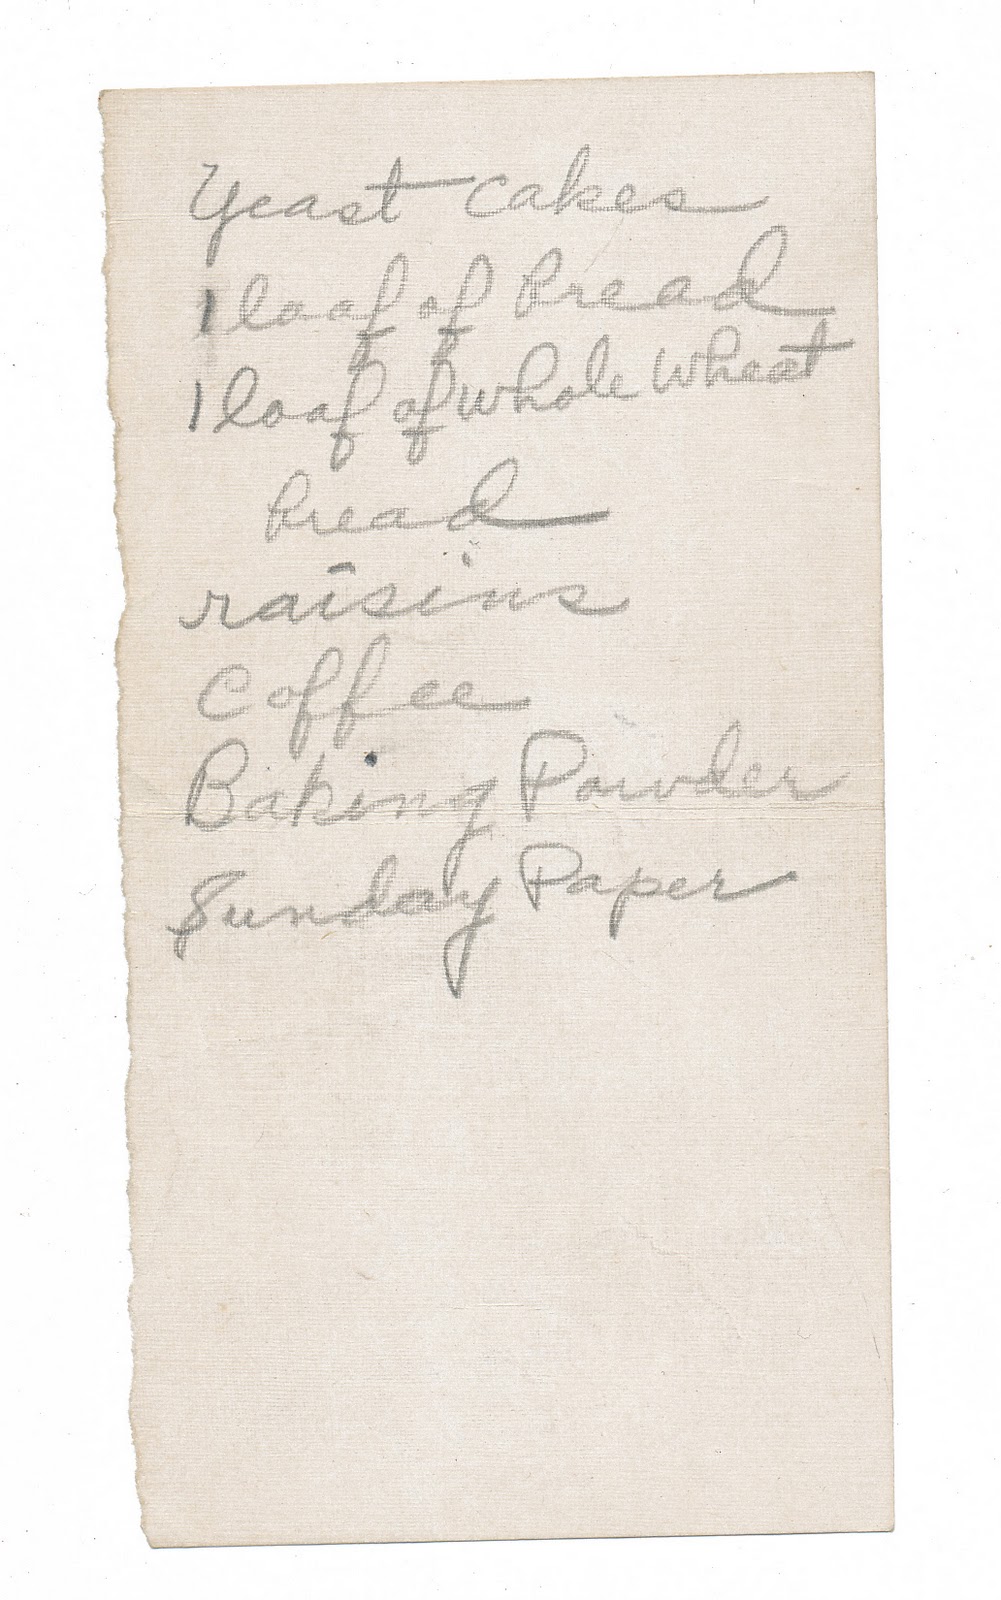 Yeast cakes
1 loaf of bread
1 loaf of whole wheat
bread
raisins
Coffee
Baking Powder
Sunday Paper